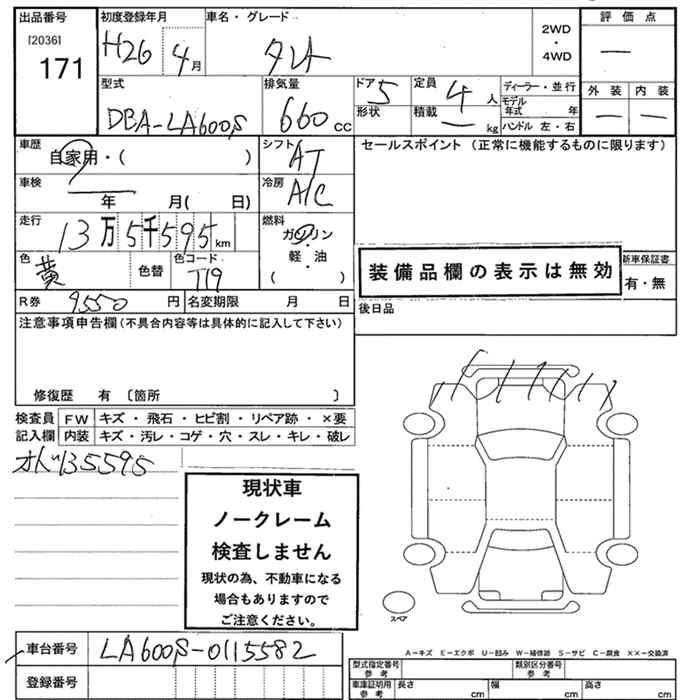 出品番号
[2036]
171
初度登録年月
H26 4月
車名・グレード
タント
2WD
・
4WD
評価点
—
外装 内装
— —
型式
DBA-LA600S
排気量
660 cc
ドア 5
形状
定員 4 人
積載 — kg
ディーラー・並行
モデル年式 年
ハンドル 左・右
車歴
自家用・( )
シフト
AT
セールスポイント(正常に機能するものに限ります)
車検
年 月( 日)
冷房
A/C
走行
13万5千595 km
燃料
ガソリン
・
軽・油
( )
色
黄
色替
色コード
T19
装備品欄の表示は無効
新車保証書
有・無
R券 9,550 円
名変期限 月 日
後日品
注意事項申告欄(不具合内容等は具体的に記入して下さい)
修復歴 有 〔箇所 〕
検査員 FW キズ・飛石・ヒビ割・リペア跡・×要
記入欄 内装 キズ・汚レ・コゲ・穴・スレ・キレ・破レ
オド135595
現状車
ノークレーム
検査しません
現状の為、不動車になる
場合もありますので
ご注意ください。
スペア
車台番号 LA600S-0115582
登録番号
A－キズ E－エクボ U－凹み W－補修跡 S－サビ C－腐食 ××－交換済
型式指定番号
参考
類別区分番号
参考
車庫証明用
参考
長さ cm
幅 cm
高さ cm